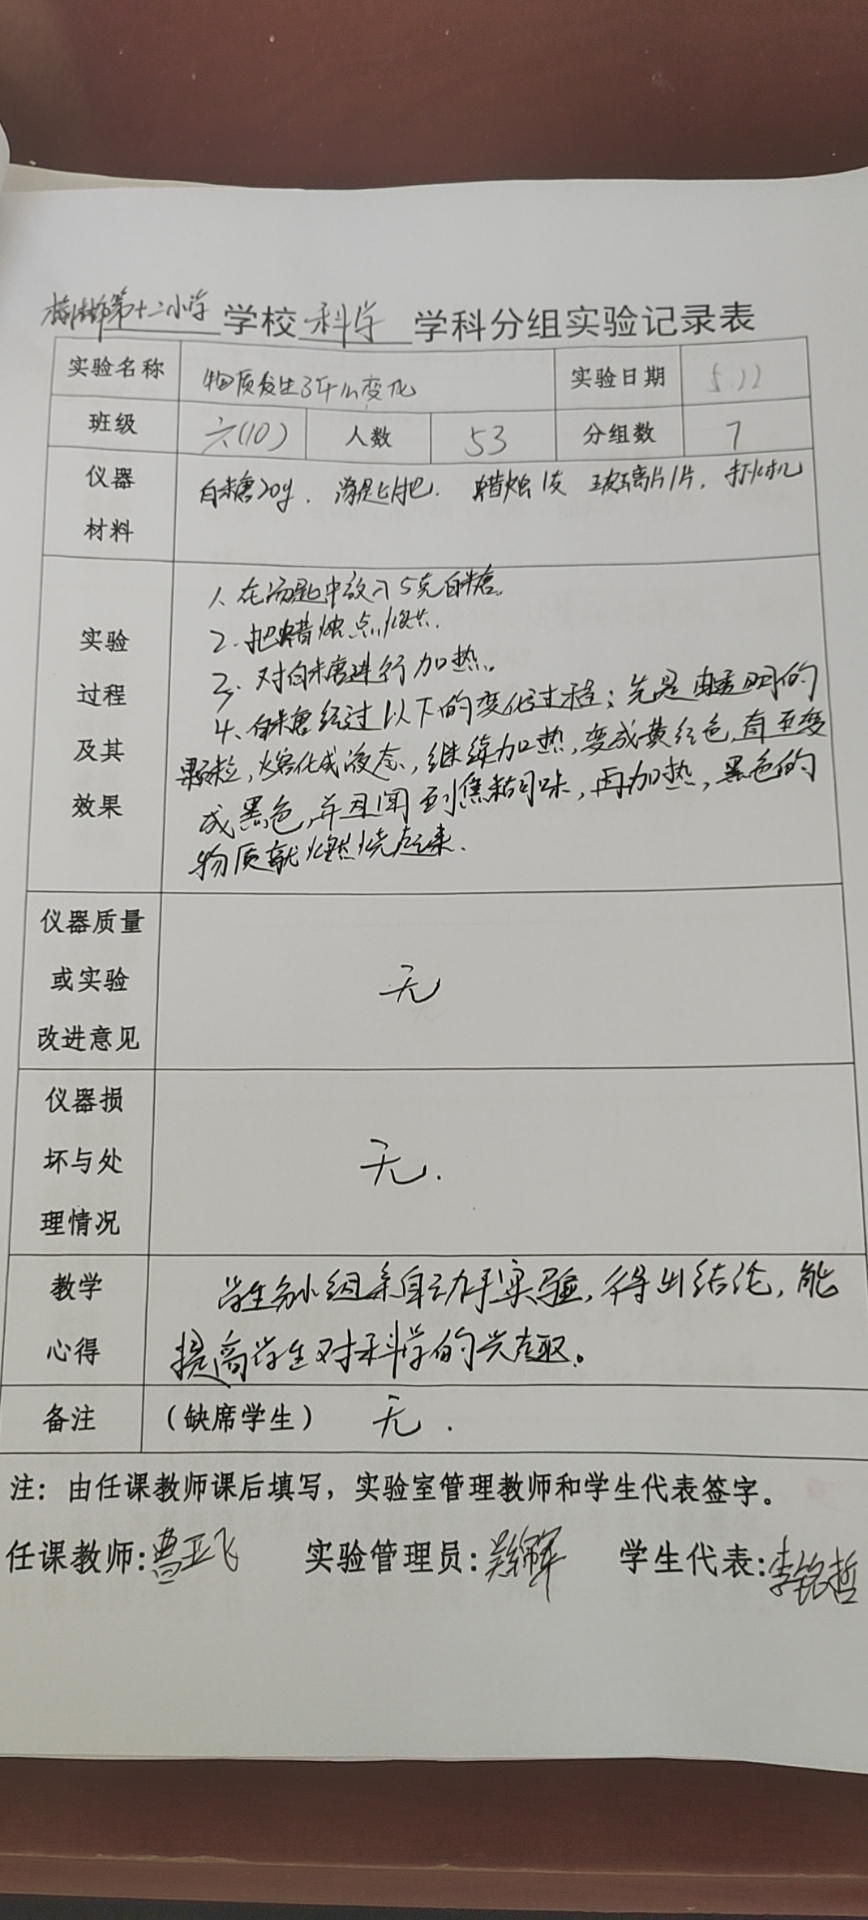 第十二小学学校科学学科分组实验记录表
实验名称 物质发生了什么变化 实验日期 5.12
班级 六(10) 人数 53 分组数 7
仪器材料 白糖20g. 汤匙1把. 蜡烛1支 玻璃片1片. 打火机
实验过程及其效果
1、在汤匙中放入5克白糖.
2、把蜡烛点燃.
3、对白糖进行加热。
4、白糖经过以下的变化过程:先是由透明的
颗粒,熔化成液态,继续加热,变成黄红色,直至变
成黑色,并且闻到焦糊味,再加热,黑色的
物质就燃烧起来.
仪器质量或实验改进意见 无
仪器损坏与处理情况 无.
教学心得 学生分小组亲自动手实验,得出结论,能
提高学生对科学的兴趣。
备注 (缺席学生) 无.
注: 由任课教师课后填写,实验室管理教师和学生代表签字。
任课教师:曹亚飞 实验管理员: 学生代表:李铭哲